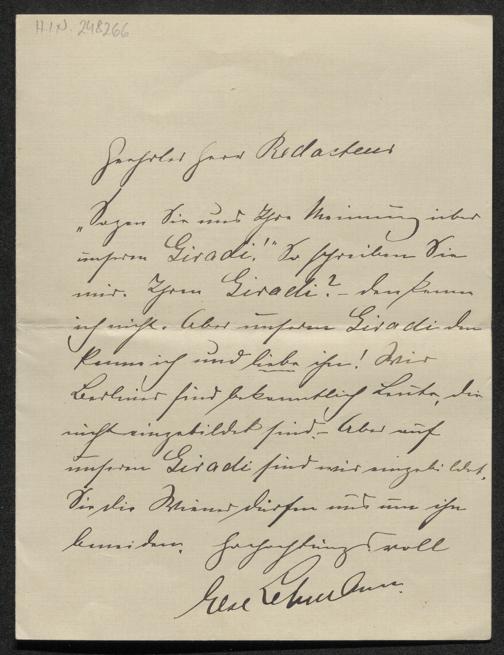 H.I.N. 248266
Geehrter Herr Redacteur
„Sagen Sie uns Ihre Meinung über
unseren Giradi!" So schreiben Sie
mir. Ihren Giradi? – den kenne
ich nicht. Aber unseren Giradi den
kenne ich und liebe ihn! Wir
Berliner sind bekanntlich Leute, die
nicht eingebildet sind. – Aber auf
unseren Giradi sind wir eingebildet.
Sie die Wiener dürfen uns um ihn
beneiden. Hochachtungsvoll
Else Lehmann.